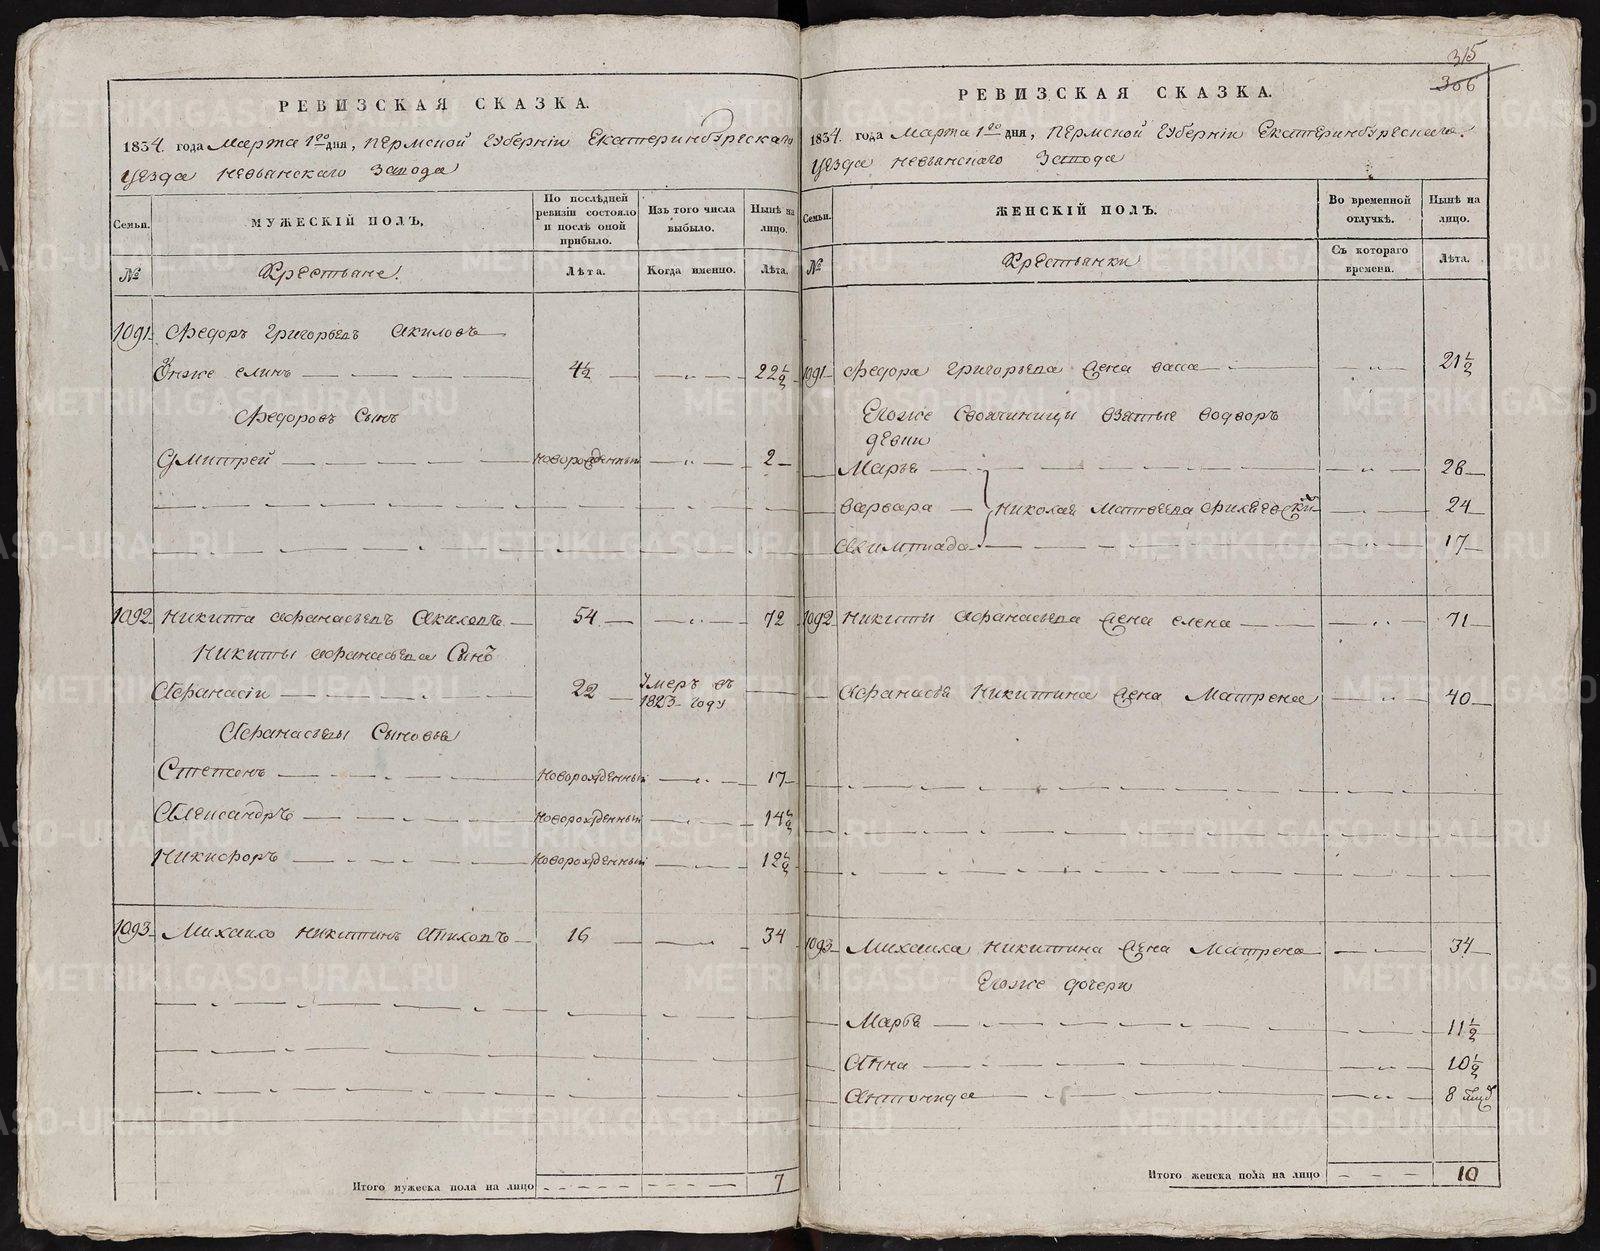 315
306
РЕВИЗСКАЯ СКАЗКА.
1834. года Марта 1го дня, Пермской Губерніи Екатеринбургскаго
уезда Невьянскаго Завода
Семьи.
МУЖЕСКІЙ ПОЛЪ,
По послѣдней ревизіи состояло и послѣ оной прибыло.
Изъ того числа выбыло.
Нынѣ на лицо.
№
Крестьяне.
Лѣта.
Когда именно.
Лѣта.
1091 Федоръ Григорьевъ Акиловъ
Онже Елинъ 4½ 22½
Федоровъ Сынъ
Дмитрей новорожденный 2
1092 Никита Афанасьевъ Акиловъ 54 72
Никиты Афанасьева Сынъ
Афанасіи 22 Умеръ въ 1823 году
Афанасьевы Сыновья
Степанъ Новорожденный 17
Александръ Новорожденный 14½
Никифоръ Новорожденный 12½
1093 Михаило Никитинъ Акиловъ 16 34
Итого мужеска пола на лицо 7
РЕВИЗСКАЯ СКАЗКА.
1834. года Марта 1го дня, Пермской Губерніи Екатеринбургскаго
уезда Невьянскаго Завода
Семьи.
ЖЕНСКІЙ ПОЛЪ.
Во временной отлучкѣ.
Нынѣ на лицо.
№
Крестьянки
Съ котораго времени.
Лѣта.
1091 Федора Григорьева Жена Васса 21½
Егоже Свояченицы взятые водворъ
девки
Марья 28
Варвара Николая Матвеева 24
Олимпиада 17
1092 Никиты Афанасьева Жена Елена 71
Афанасья Никитина Жена Матрена 40
1093 Михаила Никитина Жена Матрена 34
Егоже дочери
Марья 11½
Анна 10½
Антонида 8
Итого женска пола на лицо 10
METRIKI.GASO-URAL.RU